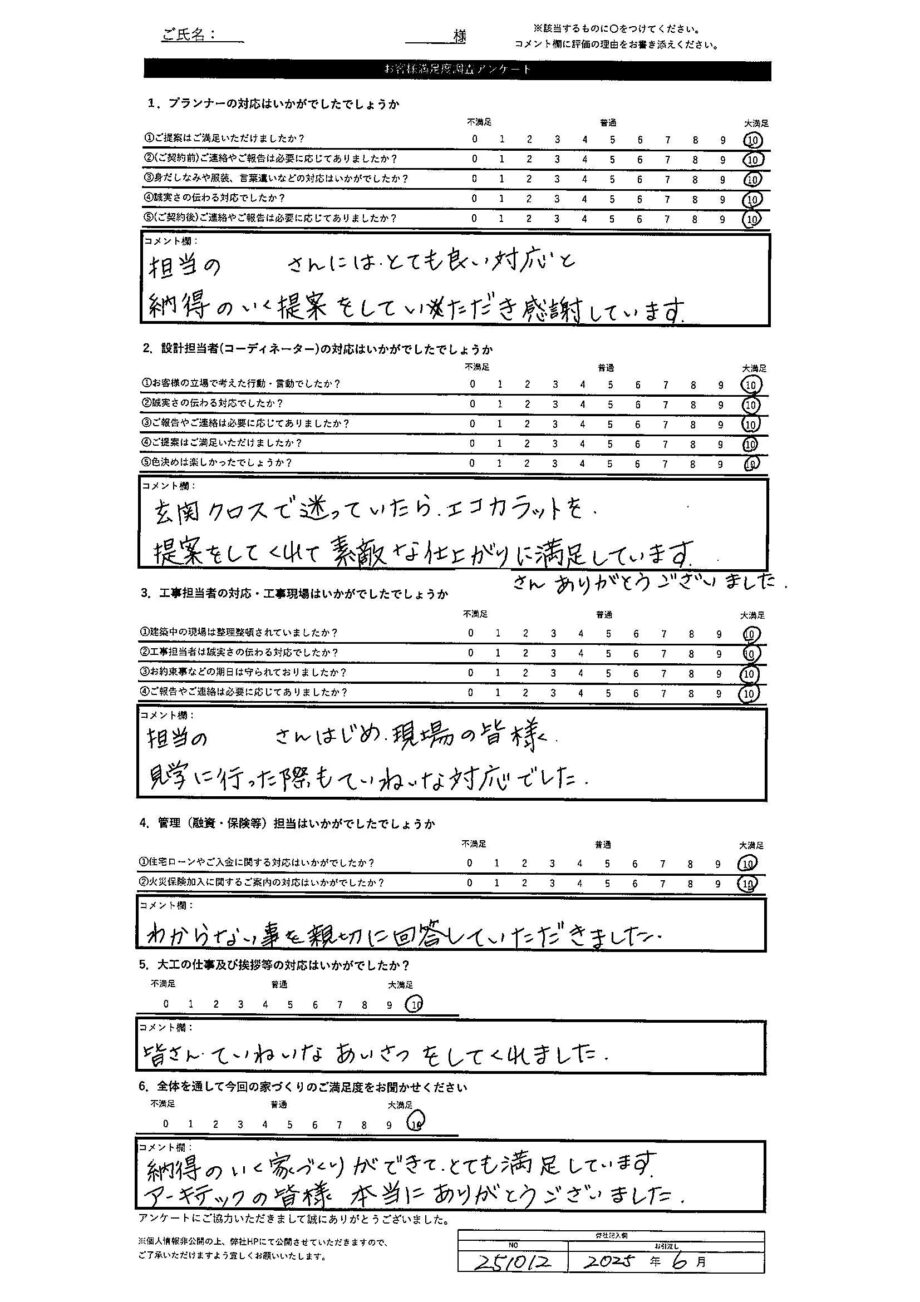 ご氏名： 様
※該当するものに〇をつけてください。
コメント欄に評価の理由をお書き添えください。
お客様満足度調査アンケート
1．プランナーの対応はいかがでしたでしょうか
不満足 普通 大満足
①ご提案はご満足いただけましたか？ 0 1 2 3 4 5 6 7 8 9 10
②(ご契約前)ご連絡やご報告は必要に応じてありましたか？ 0 1 2 3 4 5 6 7 8 9 10
③身だしなみや服装、言葉遣いなどの対応はいかがでしたか？ 0 1 2 3 4 5 6 7 8 9 10
④誠実さの伝わる対応でしたか？ 0 1 2 3 4 5 6 7 8 9 10
⑤(ご契約後)ご連絡やご報告は必要に応じてありましたか？ 0 1 2 3 4 5 6 7 8 9 10
コメント欄：
担当の さんには、とても良い対応と
納得のいく提案をしていただき感謝しています。
2．設計担当者(コーディネーター)の対応はいかがでしたでしょうか
不満足 普通 大満足
①お客様の立場で考えた行動・言動でしたか？ 0 1 2 3 4 5 6 7 8 9 10
②誠実さの伝わる対応でしたか？ 0 1 2 3 4 5 6 7 8 9 10
③ご報告やご連絡は必要に応じてありましたか？ 0 1 2 3 4 5 6 7 8 9 10
④ご提案はご満足いただけましたか？ 0 1 2 3 4 5 6 7 8 9 10
⑤色決めは楽しかったでしょうか？ 0 1 2 3 4 5 6 7 8 9 10
コメント欄：
玄関クロスで迷っていたら、エコカラットを、
提案をしてくれて素敵な仕上がりに満足しています。
さん ありがとうございました。
3．工事担当者の対応・工事現場はいかがでしたでしょうか
不満足 普通 大満足
①建築中の現場は整理整頓されていましたか？ 0 1 2 3 4 5 6 7 8 9 10
②工事担当者は誠実さの伝わる対応でしたか？ 0 1 2 3 4 5 6 7 8 9 10
③お約束事などの期日は守られておりましたか？ 0 1 2 3 4 5 6 7 8 9 10
④ご報告やご連絡は必要に応じてありましたか？ 0 1 2 3 4 5 6 7 8 9 10
コメント欄：
担当の さんはじめ、現場の皆様、
見学に行った際もていねいな対応でした。
4．管理（融資・保険等）担当はいかがでしたでしょうか
不満足 普通 大満足
①住宅ローンやご入金に関する対応はいかがでしたか？ 0 1 2 3 4 5 6 7 8 9 10
②火災保険加入に関するご案内の対応はいかがでしたか？ 0 1 2 3 4 5 6 7 8 9 10
コメント欄：
わからない事を親切に回答していただきました。
5．大工の仕事及び挨拶等の対応はいかがでしたか？
不満足 普通 大満足
0 1 2 3 4 5 6 7 8 9 10
コメント欄：
皆さん、ていねいな あいさつ をしてくれました。
6．全体を通して今回の家づくりのご満足度をお聞かせください
不満足 普通 大満足
0 1 2 3 4 5 6 7 8 9 10
コメント欄：
納得のいく家づくりができて、とても満足しています。
アーキテックの皆様 本当にありがとうございました。
アンケートにご協力いただきまして誠にありがとうございました。
※個人情報非公開の上、弊社HPにて公開させていただきますので、
ご了承いただけますよう宜しくお願いいたします。
弊社記入欄
NO お引渡し
251012 2025 年 6 月